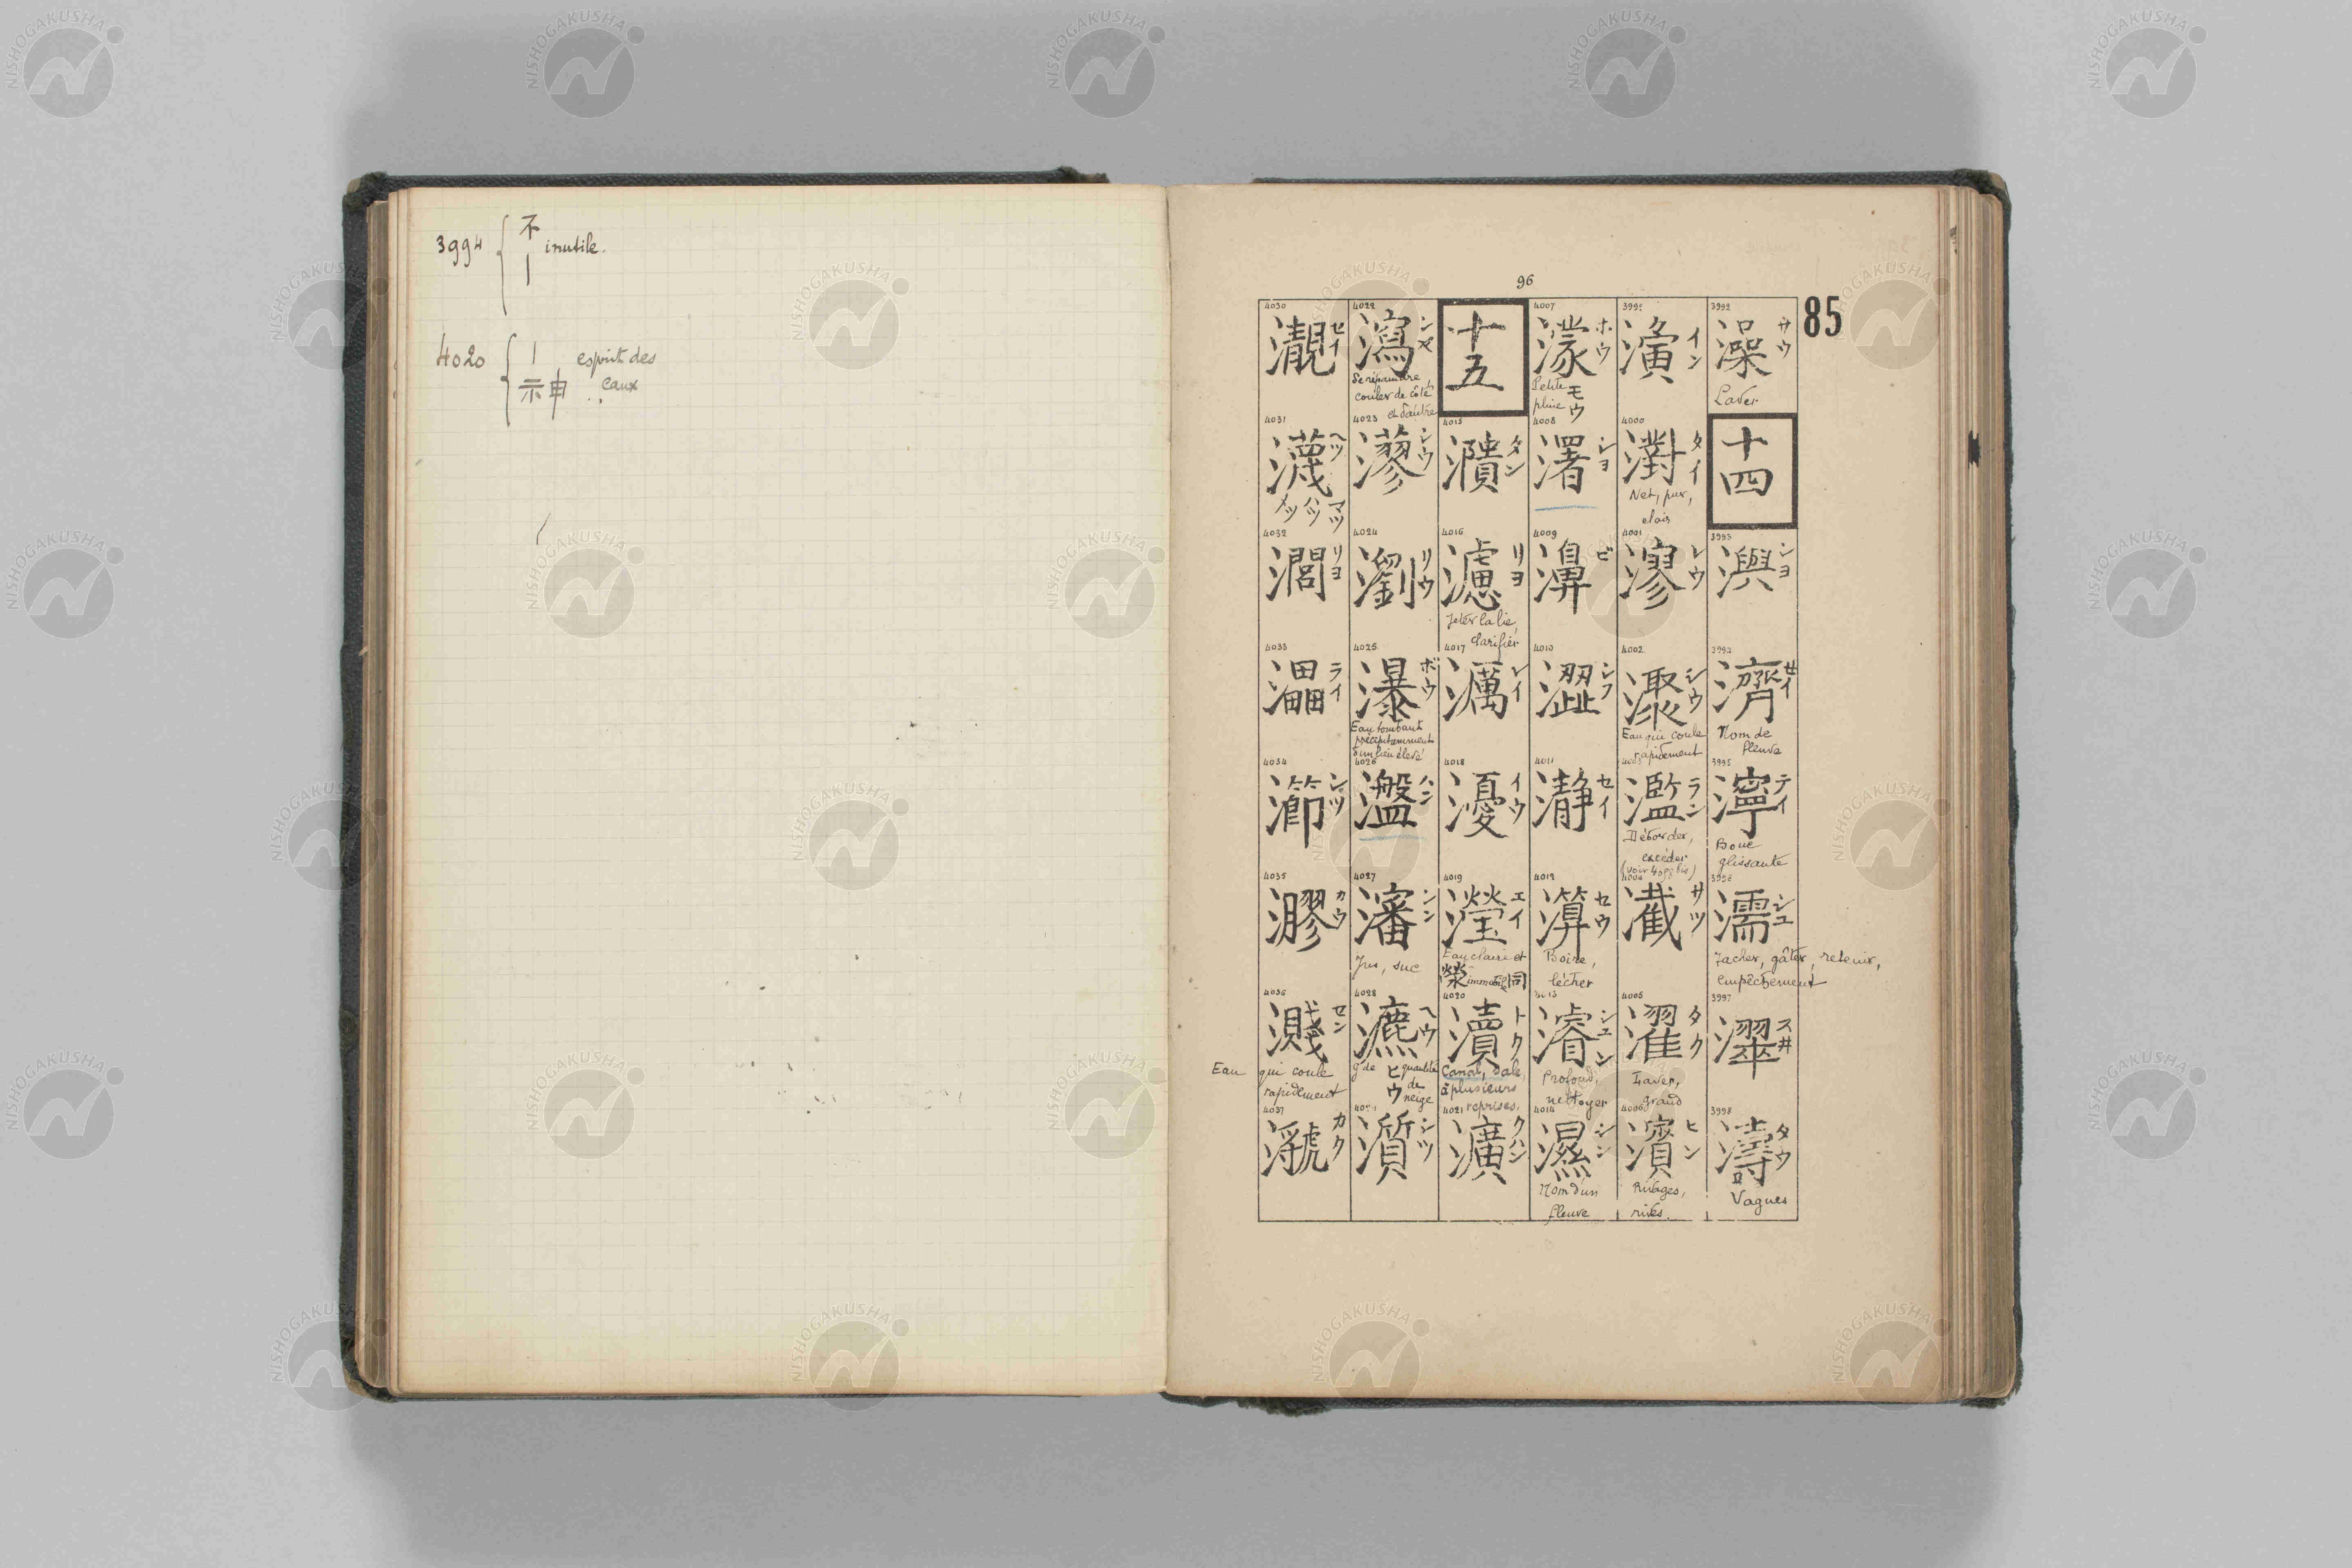 3994 不 inutile.
|
4020 | esprit des
示申 eaux
96
85
3992
澡 サウ
Laver
十四
3993
㵰 シヨ
3994
濟 セイ
Nom de
fleuve
3995
濘 テイ
Boue
glissante
3996
濡 シユ
Tacher, gâter, retenir,
empêchement
3997
濢 スヰ
3998
濤 タウ
Vagues
3999
濥 イン
4000
濧 タイ
Net, pur,
clair
4001
漻 レウ
4002
Eau qui coule
rapidement
シウ
4003
濫 ラン
Déborder,
excéder
4004
サツ
4005
濯 タク
Laver,
grand
4006
濱 ヒン
Rivages,
rives.
4007
濛 ホウ
モウ
Petite
pluie
4008
濖 シヨ
4009
濞 ビ
4010
澀 シフ
4011
瀞 セイ
4012
セウ
Boire,
lécher
4013
濬 シユン
Profond,
nettoyer
4014
濕 シン
Nom d'un
fleuve
十五
4015
タン
4016
濾 リヨ
Jeter la lie,
clarifier
4017
濿 レイ
4018
瀀 イウ
4019
瀅 エイ
Eau claire et
immobile 同
4020
瀆 トク
Canal, sale,
à plusieurs
reprises.
4021
瀇 クハン
4022
瀉 シヤ
Se répandre
couler de côté
et d'autre
4023
シウ
4024
瀏 リウ
4025
瀑 ボウ
Eau tombant
précipitamment
d'un lieu élevé
4026
瀊 ハン
4027
瀋 シン
Jus, suc
4028
瀌 ヘウ
ヒウ
gde quantité
de
neige
瀢 シツ
4030
瀙 セイ
4031
瀎 ヘツ
メツ ハツ マツ
4032
リヨ
4033
灅 ライ
4034
瀄 シツ
4035
カウ
4036
濺 セン
Eau qui coule
rapidement
4037
カク